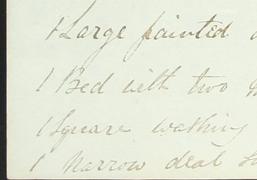 1 Large painted
1 Bed with two
1 Square washing
1 Narrow deal